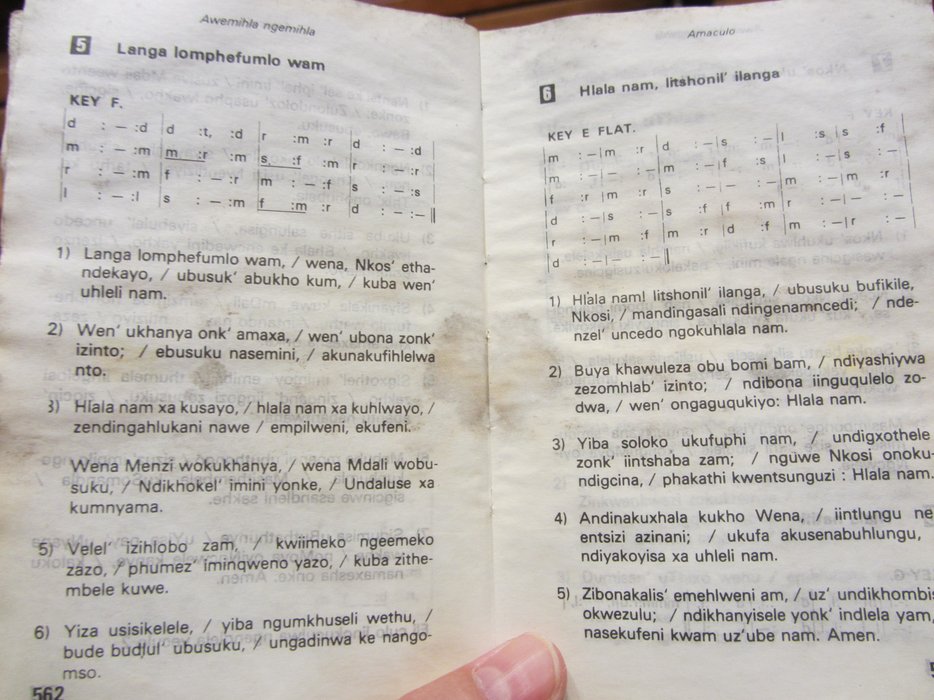 Awemihla ngemihla
5 Langa lomphefumlo wam
KEY F.
d : – :d | d :t, :d | r :m :r | d : – :d
m : – :m | m :r :m | s :f :m | r : – :r
r : – :m | f : – :r | m : – :f | s : – :s
l : – :l | s : – :m | f :m :r | d : – :– ‖
1) Langa lomphefumlo wam, / wena, Nkos' etha-
ndekayo, / ubusuk' abukho kum, / kuba wen'
uhleli nam.
2) Wen' ukhanya onk' amaxa, / wen' ubona zonk'
izinto; / ebusuku nasemini, / akunakufihlelwa
nto.
3) Hlala nam xa kusayo, / hlala nam xa kuhlwayo, /
zendingahlukani nawe / empilweni, ekufeni.
Wena Menzi wokukhanya, / wena Mdali wobu-
suku, / Ndikhokel' imini yonke, / Undaluse xa
kumnyama.
5) Velel' izihlobo zam, / kwiimeko ngeemeko
zazo, / phumez' iminqweno yazo, / kuba zithe-
mbele kuwe.
6) Yiza usisikelele, / yiba ngumkhuseli wethu, /
bude budlul' ubusuku, / ungadinwa ke nango-
mso.
562
Amaculo
6 Hlala nam, litshonil' ilanga
KEY E FLAT.
m : – | m :r | d : – | s : – | l :s | s :f
m : – | – : – | m : – | f :s | l : – | s : –
f :r | m :r | s : – | – : – | m : – | m :r
d : – | s : – | s :f | f :m | m : – | r : –
r : – | m :f | m :r | d :f | m : – | r : –
d : – | – : – ‖
1) Hlala nam! litshonil' ilanga, / ubusuku bufikile,
Nkosi, / mandingasali ndingenamncedi; / nde-
nzel' uncedo ngokuhlala nam.
2) Buya khawuleza obu bomi bam, / ndiyashiywa
zezomhlab' izinto; / ndibona iinguqulelo zo-
dwa, / wen' ongaguqukiyo: Hlala nam.
3) Yiba soloko ukufuphi nam, / undigxothele
zonk' iintshaba zam; / nguwe Nkosi onoku-
ndigcina, / phakathi kwentsunguzi : Hlala nam.
4) Andinakuxhala kukho Wena, / iintlungu ne
entsizi azinani; / ukufa akusenabuhlungu,
ndiyakoyisa xa uhleli nam.
5) Zibonakalis' emehlweni am, / uz' undikhombi
okwezulu; / ndikhanyisele yonk' indlela yam,
nasekufeni kwam uz'ube nam. Amen.